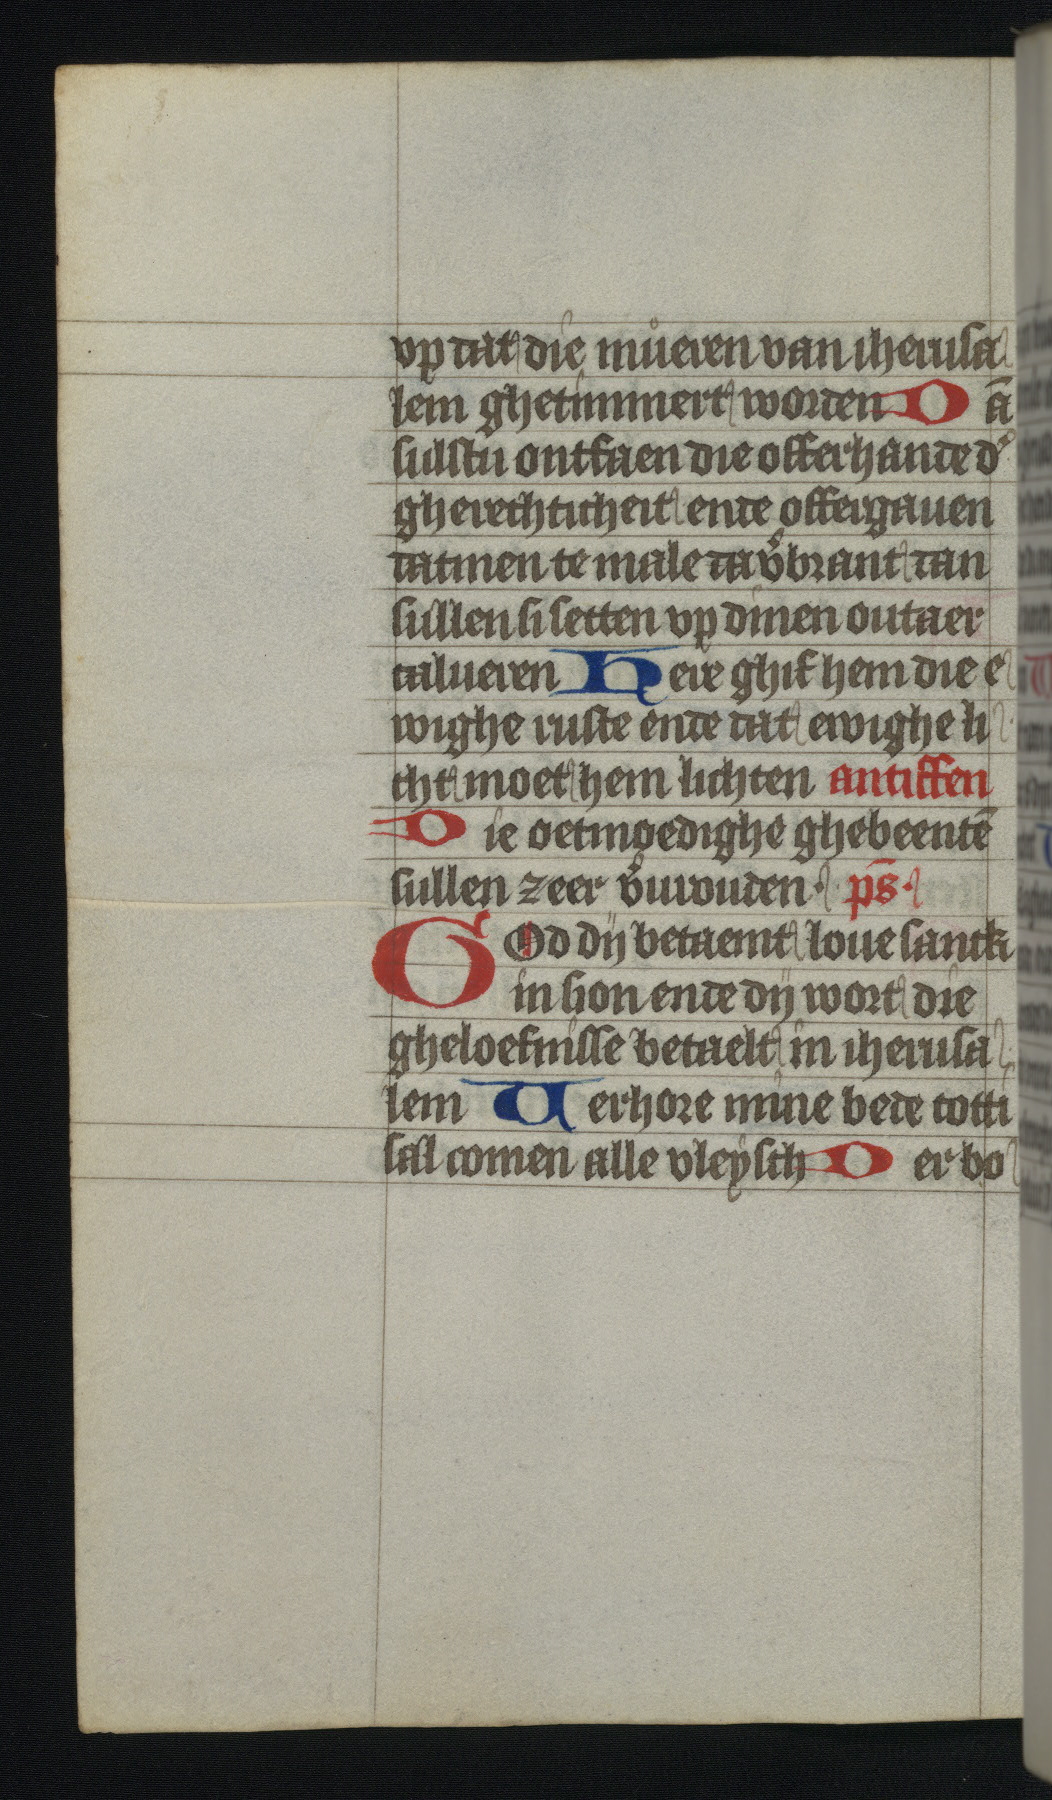 vp dat die mueren van iherusa
lem ghetimmert worden Dā
sulstu ontfaen die offerhande d'
gherechticheit ende offergauen
datmen te male dav'brant dan
sullen si setten vp dinen outaer
calueren Here ghif hem die e
wighe ruste ende dat ewighe li
cht moet hem lichten antiffen
Die oetmoedighe ghebeentē
sullen zeer v'urouden · p̄s ·
GOd dij betaemt loue sanck
in sion ende dij wort die
gheloefnisse betaelt in iherusa
lem Uerhore mine bede totti
sal comen alle vleysch Der bo